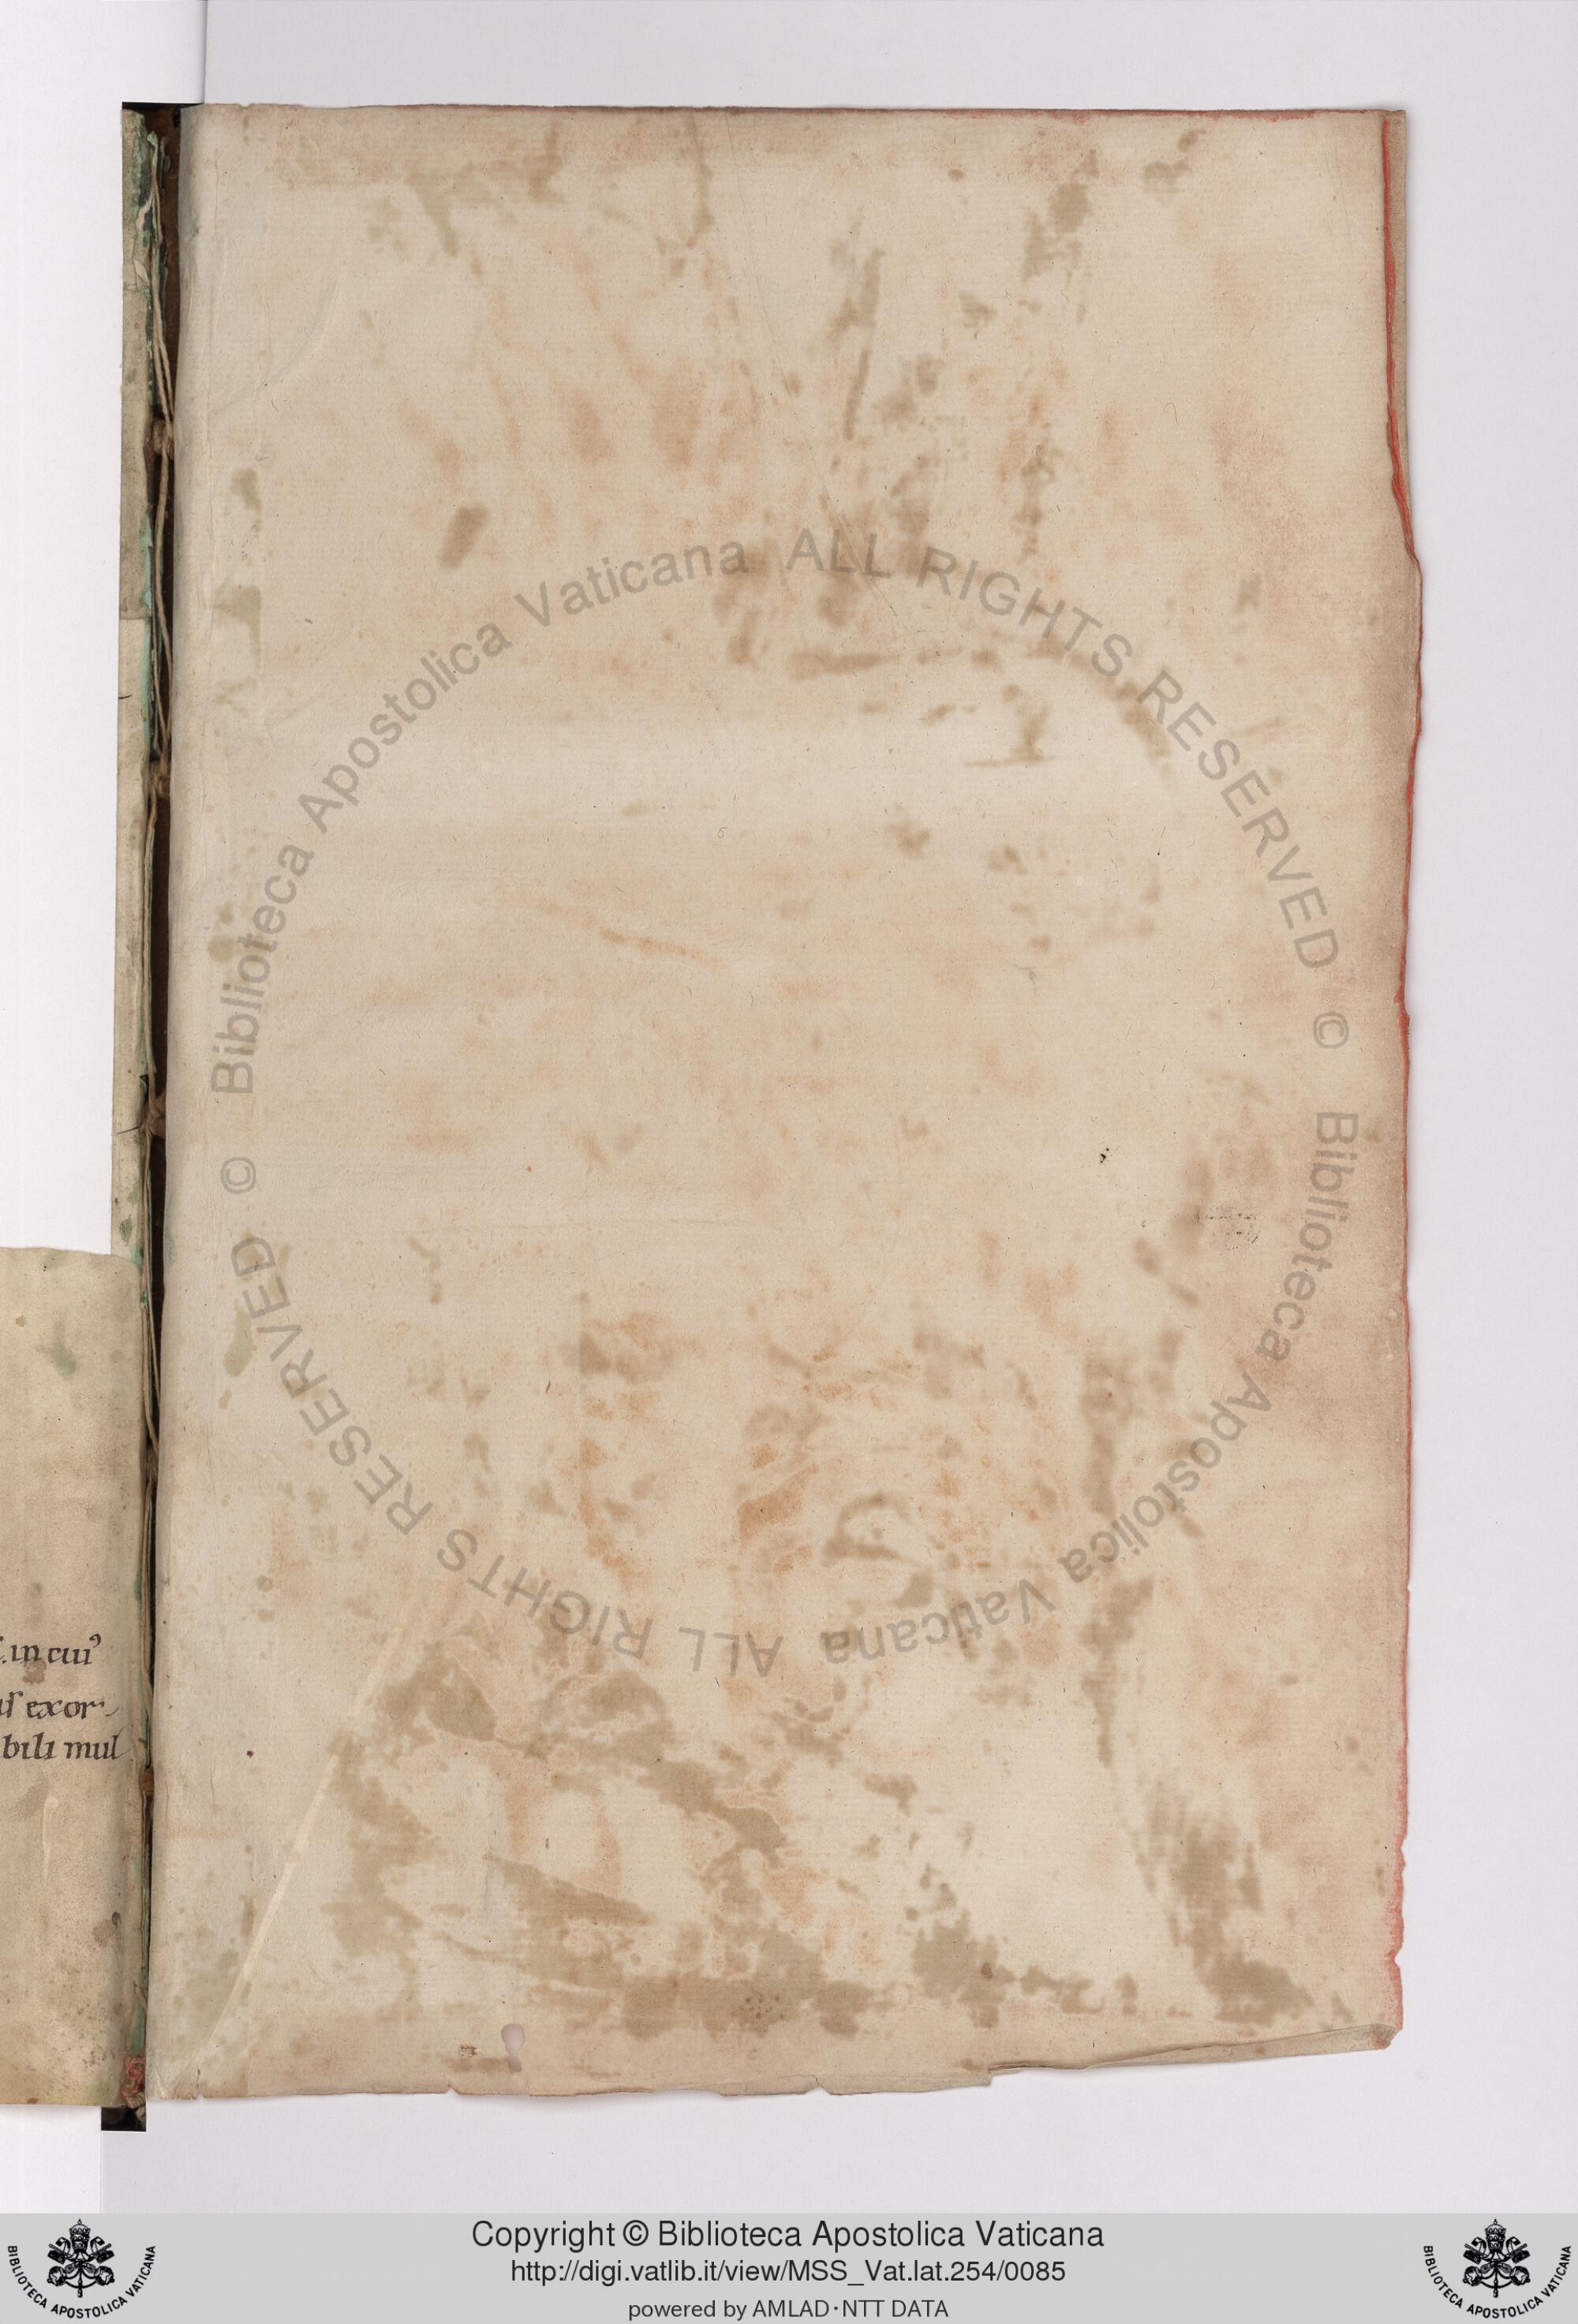 .in cui⁹
uſ exor-
bili mul
© Biblioteca Apostolica Vaticana ALL RIGHTS RESERVED
© Biblioteca Apostolica Vaticana ALL RIGHTS RESERVED
Copyright © Biblioteca Apostolica Vaticana
http://digi.vatlib.it/view/MSS_Vat.lat.254/0085
powered by AMLAD·NTT DATA
BIBLIOTECA APOSTOLICA VATICANA
BIBLIOTECA APOSTOLICA VATICANA